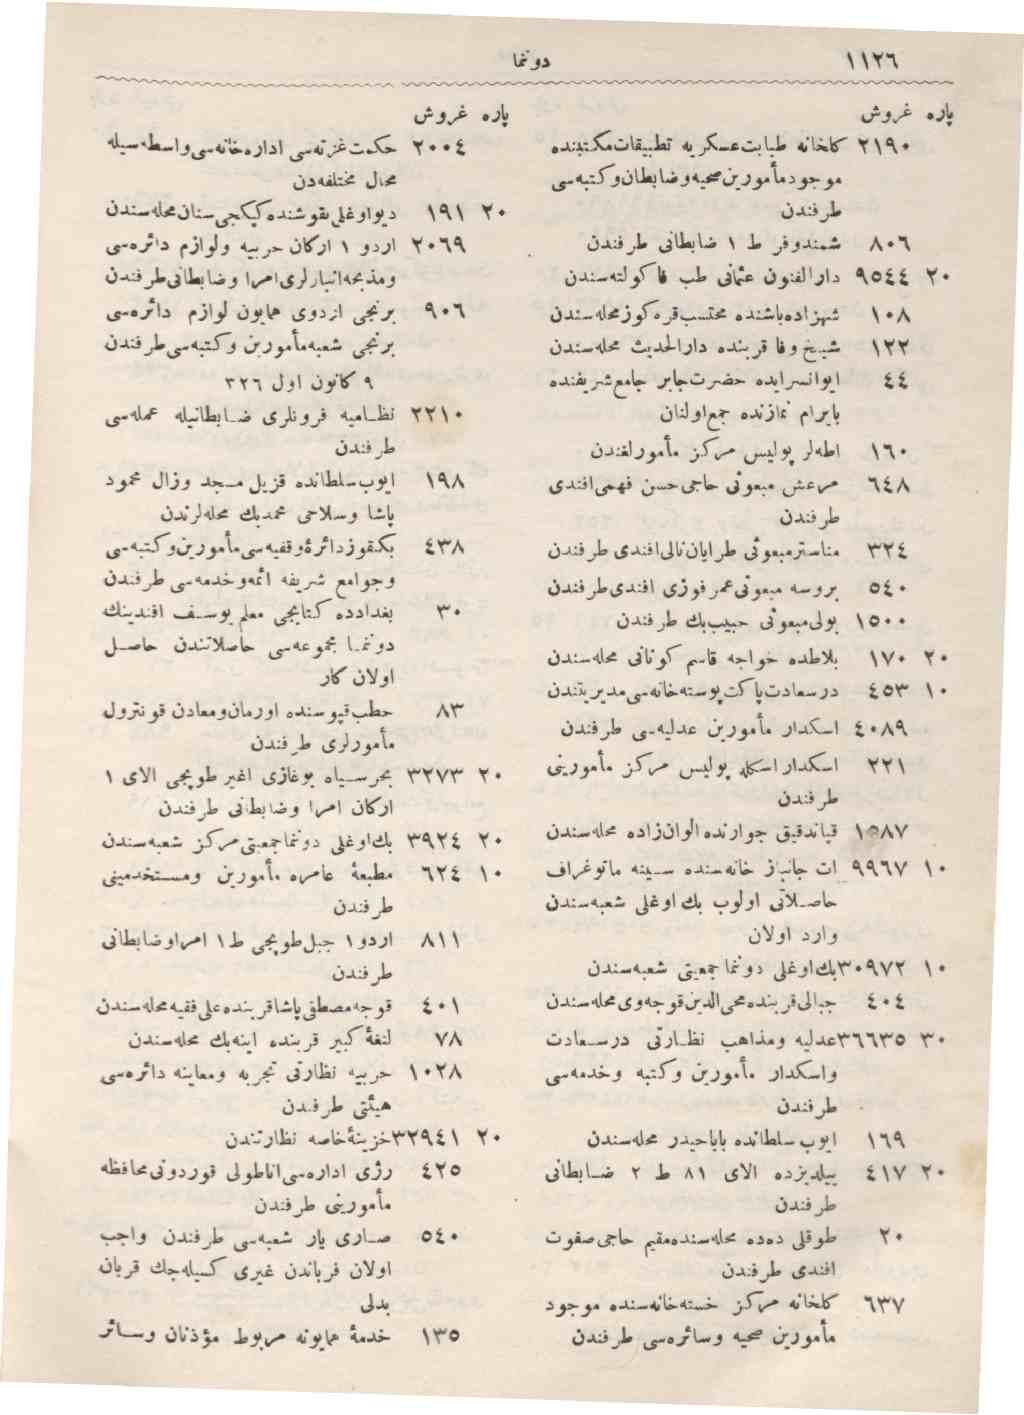 ١١٢٦
دونما
پاره غروش
٢١٩٠ كلخانه طبابت‌عسكريه تطبيقات‌مكتبنده
موجود مأمورين‌صحيه‌وضابطان‌وكتبه‌سى
طرفندن
٨٠٦ شمندوفر ط ١ ضابطانى طرفندن
٢٠ ٩٥٤٤ دارالفنون عثمانى طب فاكولته‌سندن
١٠٨ شهزاده‌باشنده محتسب‌قره‌كوز محله‌سندن
١٢٢ شيخ وفا قربنده دارالحديث محله‌سندن
٤٤ ايوانسرايده حضرت‌جابر جامع‌شريفنده
بايرام نمازنده جمع‌اولنان
١٦٠ اطه‌لر پوليس مركز مأمورلغندن
٦٤٨ مرعش مبعوثى حاجى‌حسن فهمى‌افندى
طرفندن
٣٢٤ مناستر مبعوثى طرايان‌نالى‌افندى طرفندن
٥٤٠ بروسه مبعوثى عمر فوزى افندى طرفندن
١٥٠٠ بولى مبعوثى حبيب‌بك طرفندن
٢٠ ١٧٠ بلاطده خواجه قاسم كونانى محله‌سندن
١٠ ٤٥٣ درسعادت پاكت پوسته‌خانه‌سى مديريتندن
٤٠٨٩ اسكدار مأمورين عدليه‌سى طرفندن
٢٢١ اسكدار اسكله پوليس مركز مأمورينى
طرفندن
١٥٨٧ قپاندقيق جوارنده الوان‌زاده محله‌سندن
١٠ ٩٩٦٧ ات جانباز خانه‌سنده سينه ماتوغراف
حاصلاتى اولوب بك اوغلى شعبه‌سندن
وارد اولان
١٠ ٣٠٩٧٢ بك‌اوغلى دونما جمعيتى شعبه‌سندن
٤٠٤ جبالى قربنده محى‌الدين‌قوجه‌وى محله‌سندن
٣٠ ٣٦٦٣٥ عدليه ومذاهب نظارتى درسعادت
واسكدار مأمورين وكتبه وخدمه‌سى
طرفندن
١٦٩ ايوب سلطانده باباحيدر محله‌سندن
٢٠ ٤١٧ ييلديزده الاى ٨١ ط ٢ ضابطانى
طرفندن
٢٠ طوقلى دده محله‌سنده‌مقيم حاجى‌صفوت
افندى طرفندن
٦٣٧ كلخانه مركز خسته‌خانه‌سنده موجود
مأمورين صحيه وسائره‌سى طرفندن
پاره غروش
٢٠٠٤ حكمت غزته‌سى اداره‌خانه‌سى واسطه‌سيله
محال مختلفه‌دن
٢٠ ١٩١ ديواوغلى يقوشنده كپكجى سنان محله‌سندن
٢٠٦٩ اردو ١ اركان حربيه ولوازم دائره‌سى
ومذبحه‌انبارلرى‌امرا وضابطانى‌طرفندن
٩٠٦ برنجى اردوى همايون لوازم دائره‌سى
برنجى شعبه‌مأمورين وكتبه‌سى طرفندن
٩ كانون اول ٣٢٦
٢٢١٠ نظاميه فرونلرى ضابطانيله عمله‌سى
طرفندن
١٩٨ ايوب سلطانده قزيل مسجد وزال محمود
پاشا وسلاحى محمدبك محله‌لرندن
٤٣٨ بكقوز دائرۀ وقفيه‌سى‌مأمورين‌وكتبه‌سى
وجوامع شريفه ائمه‌وخدمه‌سى طرفندن
٣٠ بغدادده كتابجى معلم يوسف افندينك
دونما مجموعه‌سى حاصلاتندن حاصل
اولان كار
٨٣ حطب‌قپوسنده اورمان‌ومعادن قونترول
مأمورلرى طرفندن
٢٠ ٣٢٧٣ بحرسياه بوغازى اغير طوپجى الاى ١
اركان امرا وضابطانى طرفندن
٢٠ ٣٩٢٤ بك‌اوغلى دونماجمعيتى‌مركز شعبه‌سندن
١٠ ٦٢٤ مطبعۀ عامره مأمورين ومستخدمينى
طرفندن
٨١١ اردو ١ جبل‌طوپجى ط ١ امرا وضابطانى
طرفندن
٤٠١ قوجه‌مصطفى‌پاشا قربنده على فقيه محله‌سندن
٧٨ لنغۀ كبير قربنده اينه‌بك محله‌سندن
١٠٢٨ حربيه نظارتى تجربه ومعاينه دائره‌سى
هيئتى طرفندن
٢٠ ٣٢٩٤١ خزينۀ‌خاصه نظارتندن
٤٢٥ رژى اداره‌سى اناطولى قوردونى‌محافظه
مأمورينى طرفندن
٥٤٠ صارى يار شعبه‌سى طرفندن واجب
اولان قرباندن غيرى كسيله‌جك قربان
بدلى
١٣٥ خدمۀ همايونه مربوط مؤذنان وسائر